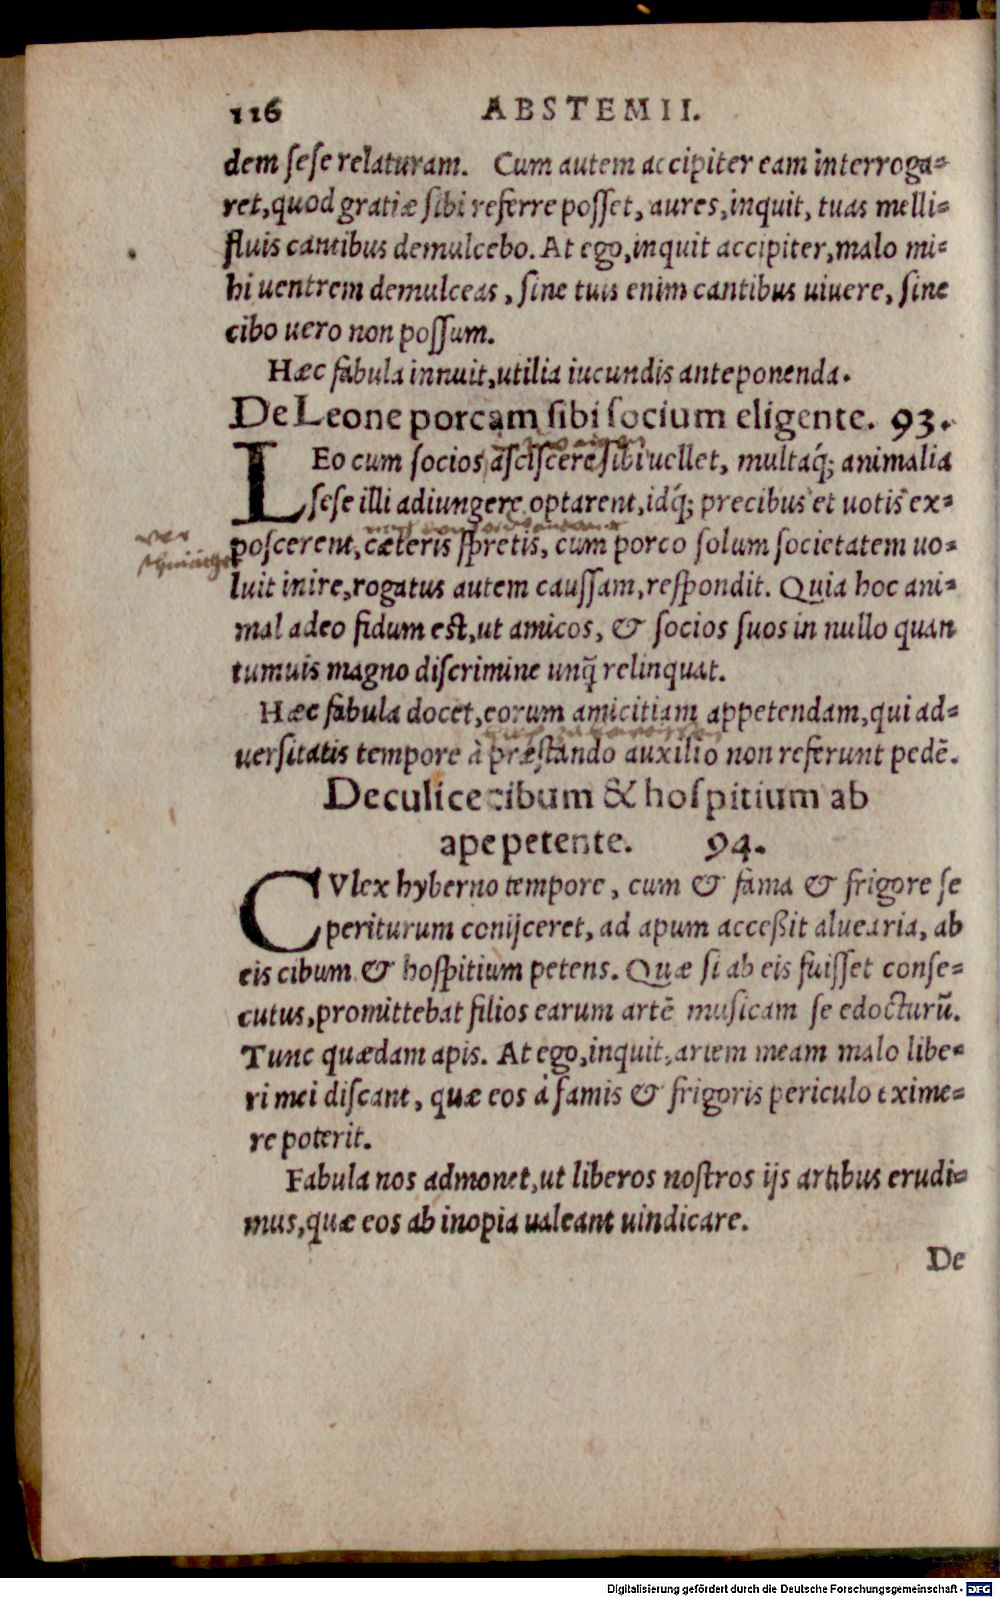 116 ABSTEMII.
dem ſeſe relaturam. Cum autem accipiter eam interroga=
ret, quod gratiæ ſibi referre poſſet, aures, inquit, tuas melli=
fluis cantibus demulcebo. At ego, inquit accipiter, malo mi=
hi uentrem demulceas, ſine tuis enim cantibus uiuere, ſine
cibo uero non poſſum.
Hæc fabula innuit, utilia iucundis anteponenda.
De Leone porcam ſibi ſocium eligente. 93.
LEo cum ſocios aſciſcere ſibi uellet, multaq́; animalia
ſeſe illi adiungere optarent, idq́; precibus et uotis ex=
poſcerent, cæteris ſpretis, cum porco ſolum ſocietatem uo=
luit inire, rogatus autem cauſſam, reſpondit. Quia hoc ani=
mal adeo fidum eſt, ut amicos, & ſocios ſuos in nullo quan
tumuis magno diſcrimine unq̃ relinquat.
Hæc fabula docet, eorum amicitiam appetendam, qui ad=
uerſitatis tempore à præſtando auxilio non referunt pedē.
De culice cibum & hoſpitium ab
ape petente. 94.
CVlex hyberno tempore, cum & fama & frigore ſe
periturum conijceret, ad apum acceßit aluearia, ab
eis cibum & hoſpitium petens. Quæ ſi ab eis fuiſſet conſe=
cutus, promittebat filios earum artē muſicam ſe edocturū.
Tunc quædam apis. At ego, inquit, artem meam malo libe=
ri mei diſcant, quæ eos à famis & frigoris periculo exime=
re poterit.
Fabula nos admonet, ut liberos noſtros ijs artibus erudi=
mus, quæ eos ab inopia ualeant uindicare.
De
Digitalisierung gefördert durch die Deutsche Forschungsgemeinschaft - DFG